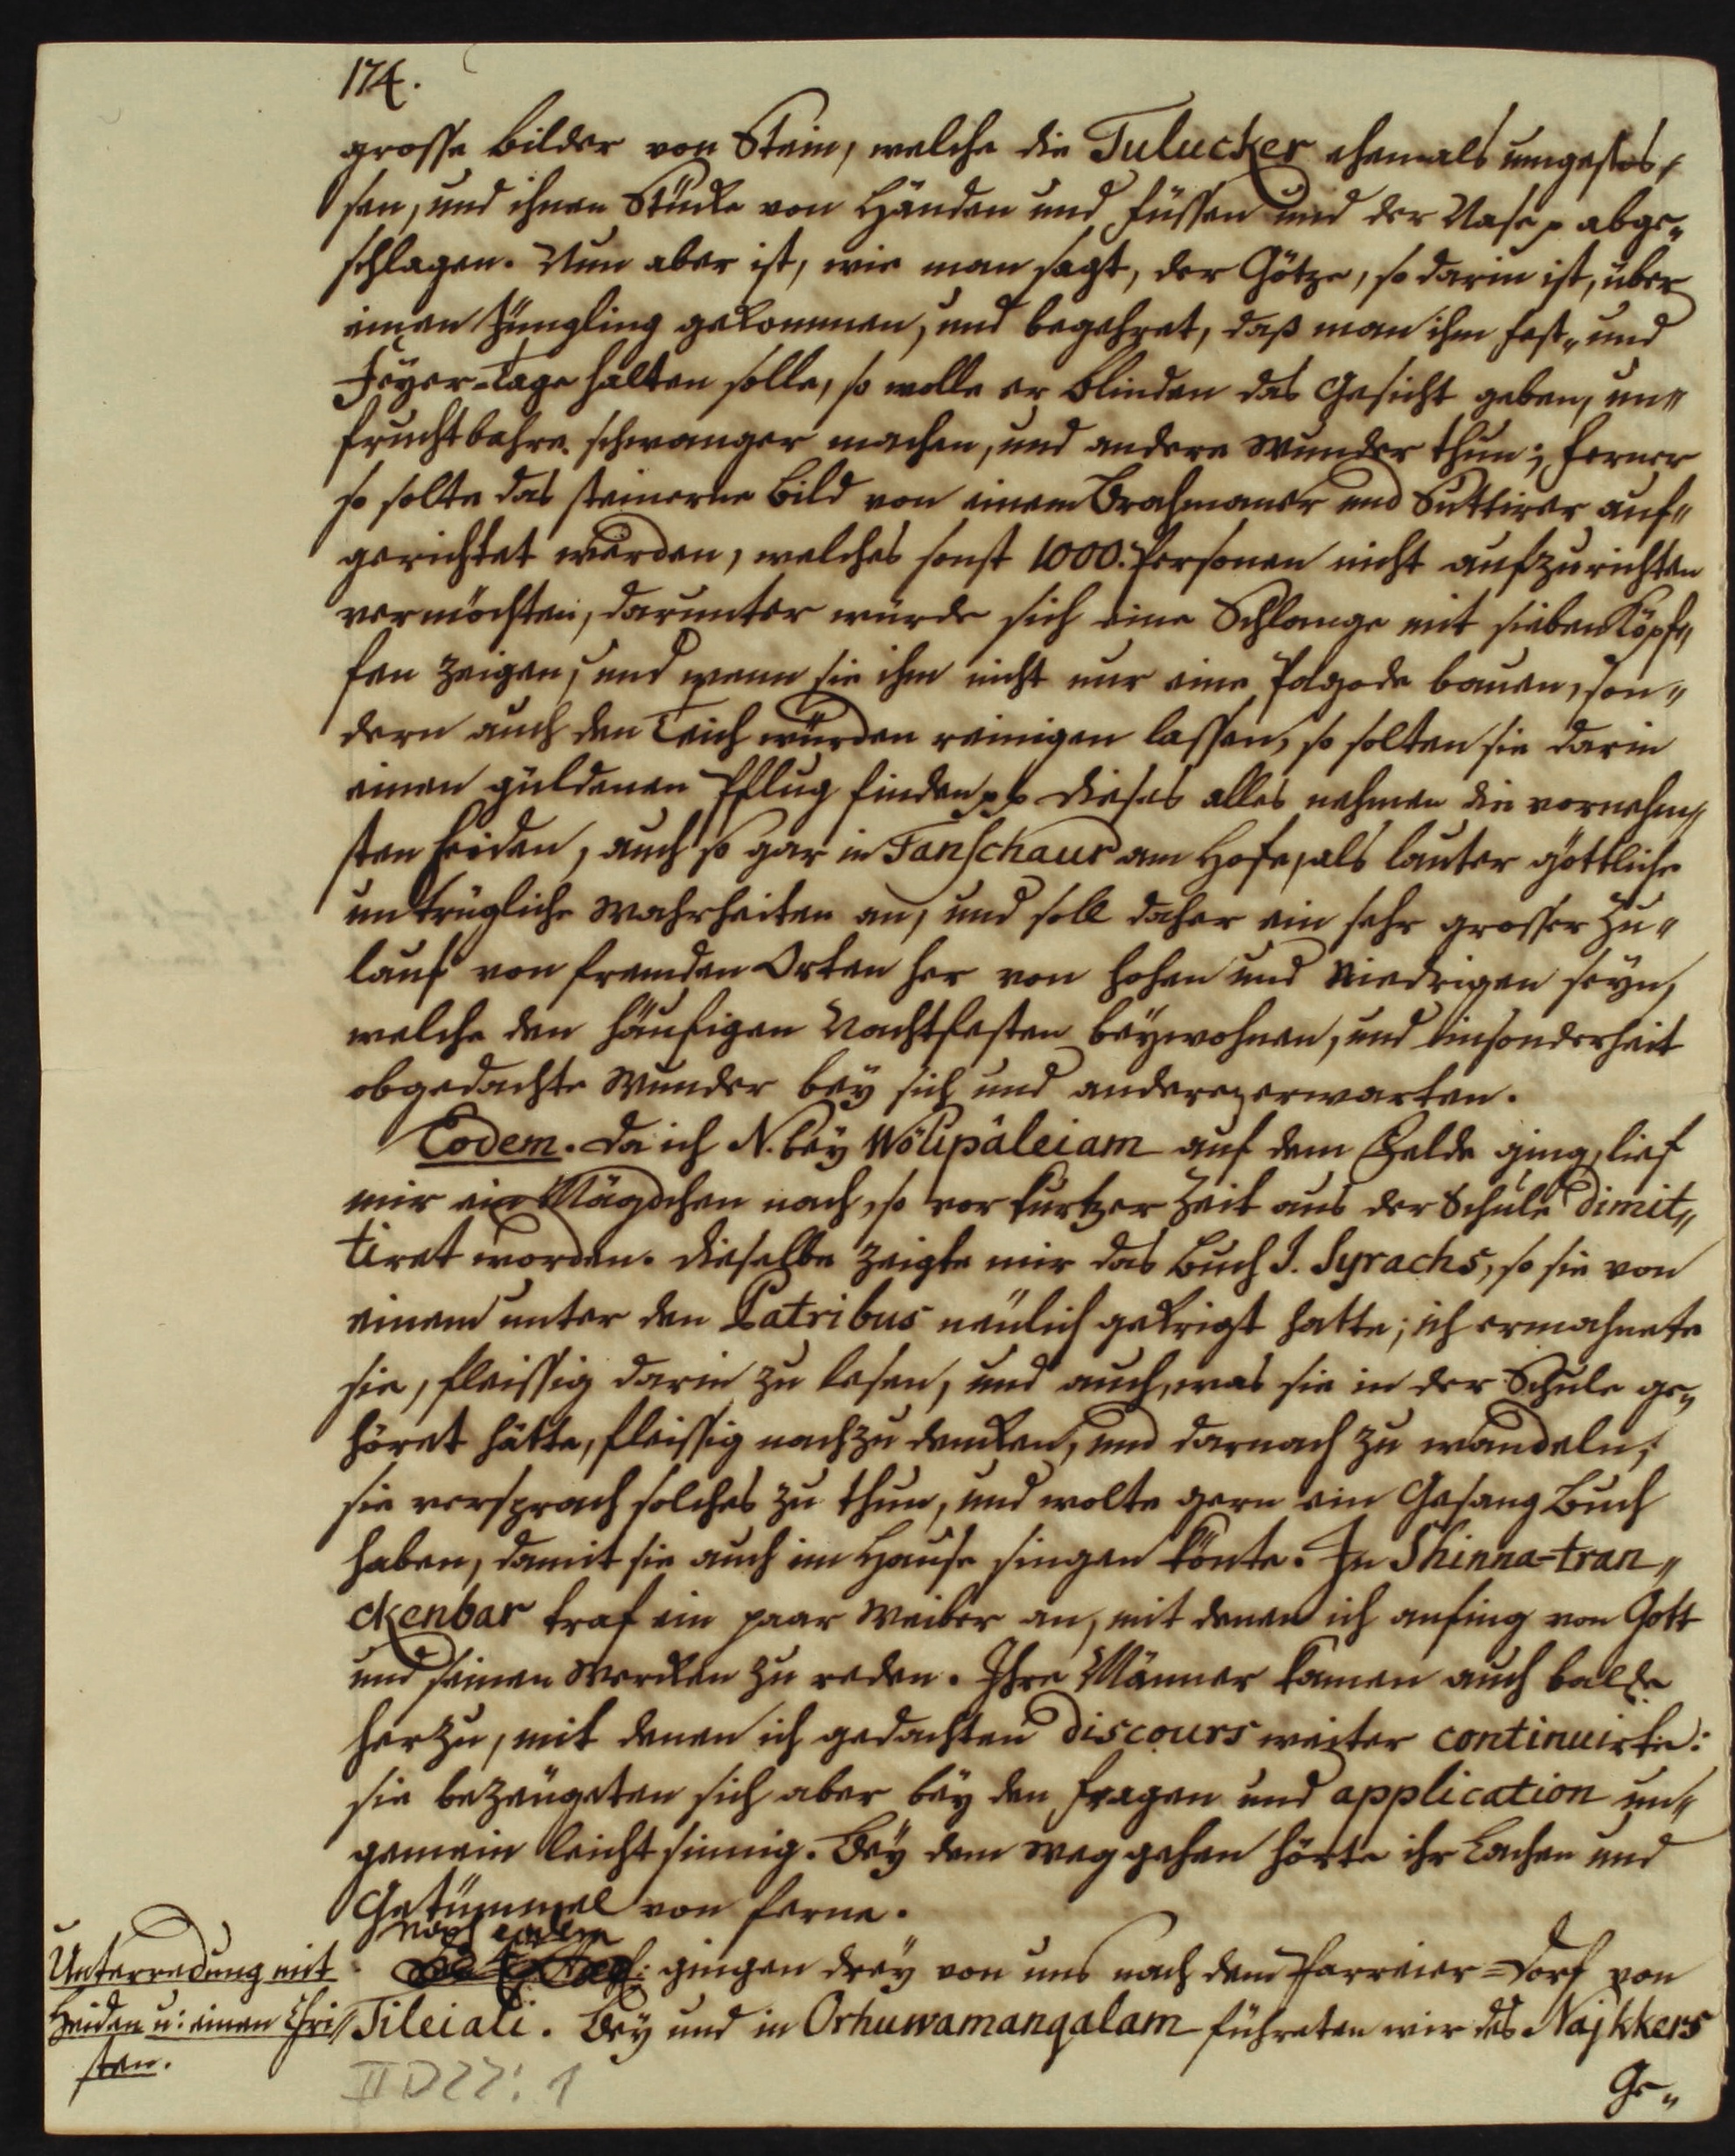 174.
grosse Bilder von Stein, welche die Tulucker ehemals umgestos„
sen, und ihnen Stücke von Händen und Füssen und der Nase p abge„
schlagen. Nun aber ist, wie man sagt, der Götze, so darin ist, über
einen Jüngling gekommen, und begehret, daß man ihm Fest„ und
Feyer-Tage halten solle, so wolle er Blinden das Gesicht geben, un„
fruchtbahre schwanger machen, und andere Wunder thun; ferner
so solte das steinerne Bild von einem Brahmaner und Suttirer auf„
gerichtet werden, welches sonst 1000. Personen nicht aufzurichten
vermöchten, darunter würde sich eine Schlange mit sieben Köpf„
fen zeigen, und wenn sie ihm nicht nur eine Pagode bauen, son„
dern auch den Teich würden reinigen lassen, so solten sie darin
einen güldenen Pflug finden pp Dieses alles nehmen die vornehm„
sten Heiden, auch so gar in Tanschaur am Hofe, als lauter göttliche
untrügliche Wahrheiten an, und soll daher ein sehr grosser Zu„
lauf von fremden Orten her von Hohen und Niedrigen seyn,
welche den häufigen Nachtfesten beywohnen, und insonderheit
obgedachte Wunder bey sich und andere erwarten.
Eodem. Da ich N. bey Wölipâleiam auf dem Felde ging, lief
mir ein Mägdchen nach, so vor kurtzer Zeit aus der Schule dimit„
tiret worden. Dieselbe zeigte mir das Buch J. Syrachs, so sie von
einem unter den Patribus neulich gekrigt hatte; ich ermahnete
sie, fleissig darin zu lesen, und auch, was sie in der Schule ge„
höret hätte, fleissig nachzudencken, und darnach zu wandeln;
sie versprach solches zu thun, und wolte gern ein Gesang Buch
haben, damit sie auch im Hause singen könte. In Shinna-tran„
ckenbar traf ein paar Weiber an, mit denen ich anfing von Gott
und seinen Wercken zu reden. Ihre Männer kamen auch balde
herzu, mit denen ich gedachten discours weiter continuirte:
sie bezeugeten sich aber bey den Fragen und application un„
gemein leichtsinnig. Bey dem Weggehen hörte ihr Lachen und
Getümmel von ferne.
Noch eodem
gingen drey von uns nach dem Parreier-Dorf von
Tileiali. Bey und in Orhuwamangalam führeten wir des Najkkers
Ge„
Unterredung mit
Heiden u: einen Chri„
sten.
II D 22: 1